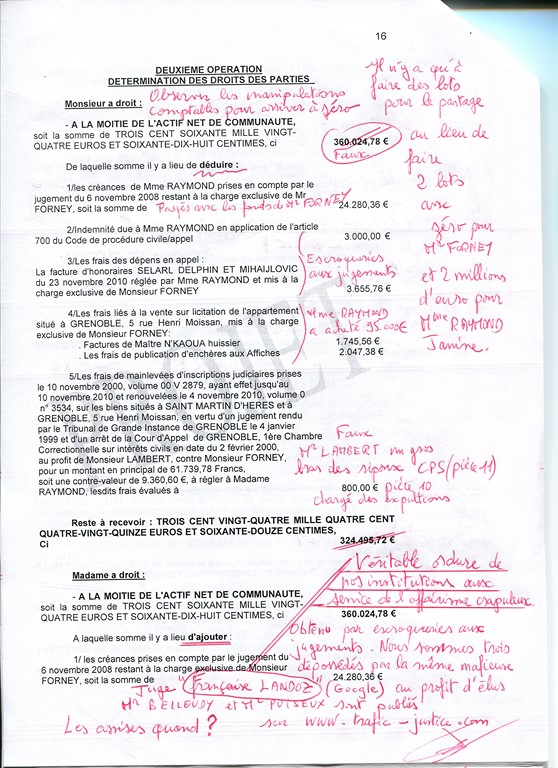 16
DEUXIEME OPERATION
DETERMINATION DES DROITS DES PARTIES
Monsieur a droit : Observer les manipulations
comptables pour arriver à zéro
Il n'y a qu'à
faire des lots
pour le partage
au lieu de
faire
2 lots
avec
zéro pour
Mr FORNEY
et 2 millions
d'euro pour
Mme RAYMOND
Janine.
- A LA MOITIE DE L'ACTIF NET DE COMMUNAUTE,
soit la somme de TROIS CENT SOIXANTE MILLE VINGT-
QUATRE EUROS ET SOIXANTE-DIX-HUIT CENTIMES, ci 360.024,78 €
Faux
De laquelle somme il y a lieu de déduire :
1/les créances de Mme RAYMOND prises en compte par le
jugement du 6 novembre 2008 restant à la charge exclusive de Mr
FORNEY, soit la somme de Payés avec les fonds de Mr FORNEY 24.280,36 €
2/Indemnité due à Mme RAYMOND en application de l'article
700 du Code de procédure civile/appel 3.000,00 €
3/Les frais des dépens en appel :
La facture d'honoraires SELARL DELPHIN ET MIHAJLOVIC
du 23 novembre 2010 réglée par Mme RAYMOND et mis à la
charge exclusive de Monsieur FORNEY 3.655,76 €
Escroqueries
aux jugements
4/Les frais liés à la vente sur licitation de l'appartement
situé à GRENOBLE, 5 rue Henri Moissan, mis à la charge
exclusive de Monsieur FORNEY:
. Factures de Maître N'KAOUA huissier 1.745,56 €
. Les frais de publication d'enchères aux Affiches 2.047,38 €
Mme RAYMOND
a acheté 95.000€
5/Les frais de mainlevées d'inscriptions judiciaires prises
le 10 novembre 2000, volume 00 V 2879, ayant effet jusqu'au
10 novembre 2010 et renouvelées le 4 novembre 2010, volume 0
n° 3534, sur les biens situés à SAINT MARTIN D'HERES et à
GRENOBLE, 5 rue Henri Moissan, en vertu d'un jugement rendu
par le Tribunal de Grande instance de GRENOBLE le 4 janvier
1999 et d'un arrêt de la Cour d'Appel de GRENOBLE, 1ère Chambre
Correctionnelle sur intérêts civils en date du 2 février 2000,
au profit de Monsieur LAMBERT, contre Monsieur FORNEY,
pour un montant en principal de 61.739,78 Francs,
soit une contre-valeur de 9.360,60 €, à régler à Madame
RAYMOND, lesdits frais évalués à 800,00 €
Faux
Mr LAMBERT un gros
bras des CPS (pièce 11)
pièce 10
chargé des expultions
Reste à recevoir : TROIS CENT VINGT-QUATRE MILLE QUATRE CENT
QUATRE-VINGT-QUINZE EUROS ET SOIXANTE-DOUZE CENTIMES,
Ci 324.495,72 €
Véritable ordure de
nos institutions aux
service de l'affairisme crapuleux.
Madame a droit :
- A LA MOITIE DE L'ACTIF NET DE COMMUNAUTE,
soit la somme de TROIS CENT SOIXANTE MILLE VINGT-
QUATRE EUROS ET SOIXANTE-DIX-HUIT CENTIMES, ci 360.024,78 €
A laquelle somme il y a lieu d'ajouter :
1/ les créances prises en compte par le jugement du
6 novembre 2008 restant à la charge exclusive de Monsieur
FORNEY, soit la somme de 24.280,36 €
Obtenu par escroqueries aux
jugements. Nous sommes trois
dépossédés par la même mafieuse
Juge "Françoise LANDOZ" (Google) au profit d'élus
Mr BELLEUDY et Mr PUISEUX sont publiés
Les assises quand ? sur www.trafic-justice.com